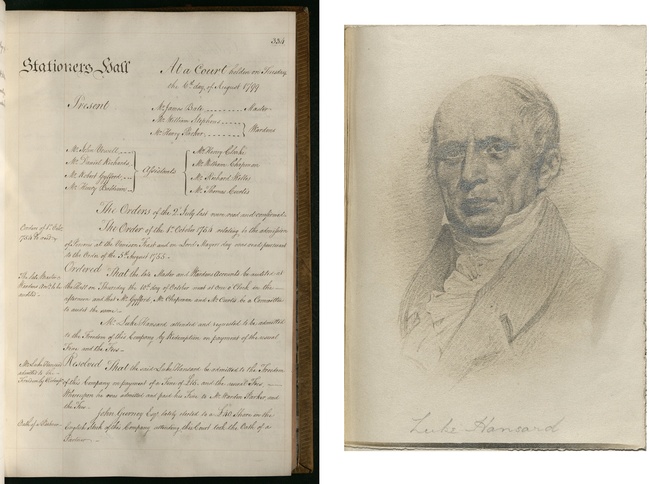 334
Stationers Hall
At a Court holden on Tuesday
the 6th day of August 1799
Present
Mr James Bate Master
Mr William Stephens
Mr Henry Parker Wardens
Mr John
Mr Daniel Richards
Mr Robert Gyfford
Mr Henry Baldwin
Assistants
Mr Henry Clarke
Mr William Chapman
Mr Richard Welles
Mr Thomas Curtis
The Orders of the 2 July last were read and confirmed
The Order of the 1st October 1754 relating to the admission
of Persons at the Venison Feast and on Lord Mayor day was read pursuant
to the Order of the 5th August 1755
Ordered That the late Master and Wardens Accounts be audited at
the Hall on Thursday the 10th day of October next at one o Clock in the
afternoon and that Mr Gyfford, Mr Chapman and Mr Curtis be a Committee
to audit the same
Mr Luke Hansard attended and requested to be admitted
to the Freedom of this Company by Redemption on payment of the usual
Fine and the Fees
Mr Luke Hansard
admitted to the
Freedom by
Resolved That the said Luke Hansard be admitted to the Freedom
of this Company on payment of a Fine of and the usual Fees
Whereupon he was admitted and paid his Fine to Mr Warden Parker and
the Fees
John Esq lately elected to a Share in the
English Stock of this Company attending this Court took the Oath of a
Partner
Luke Hansard